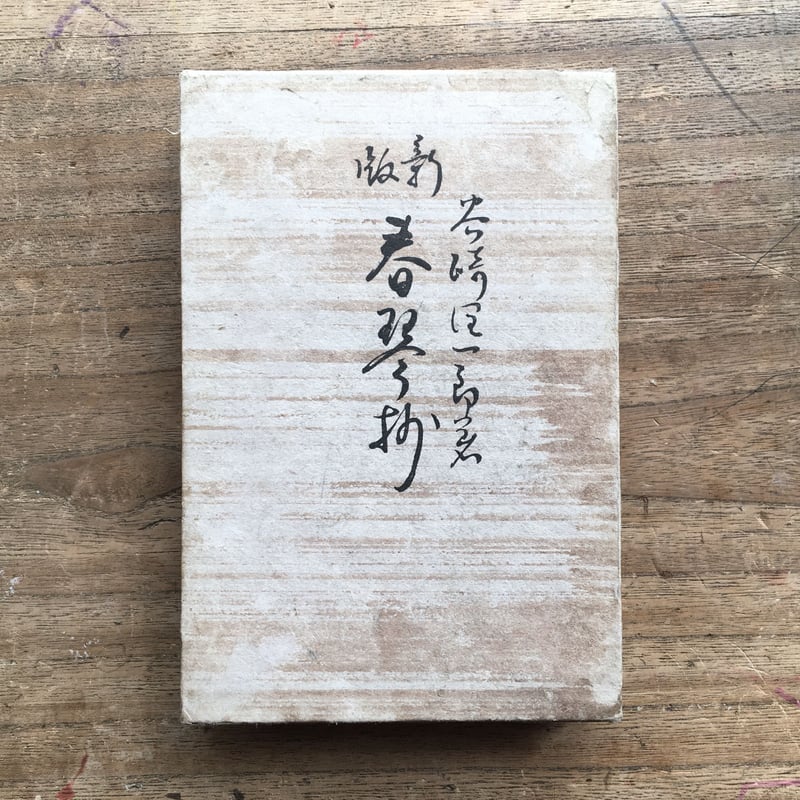 谷崎潤一郎著
新版
春琴抄